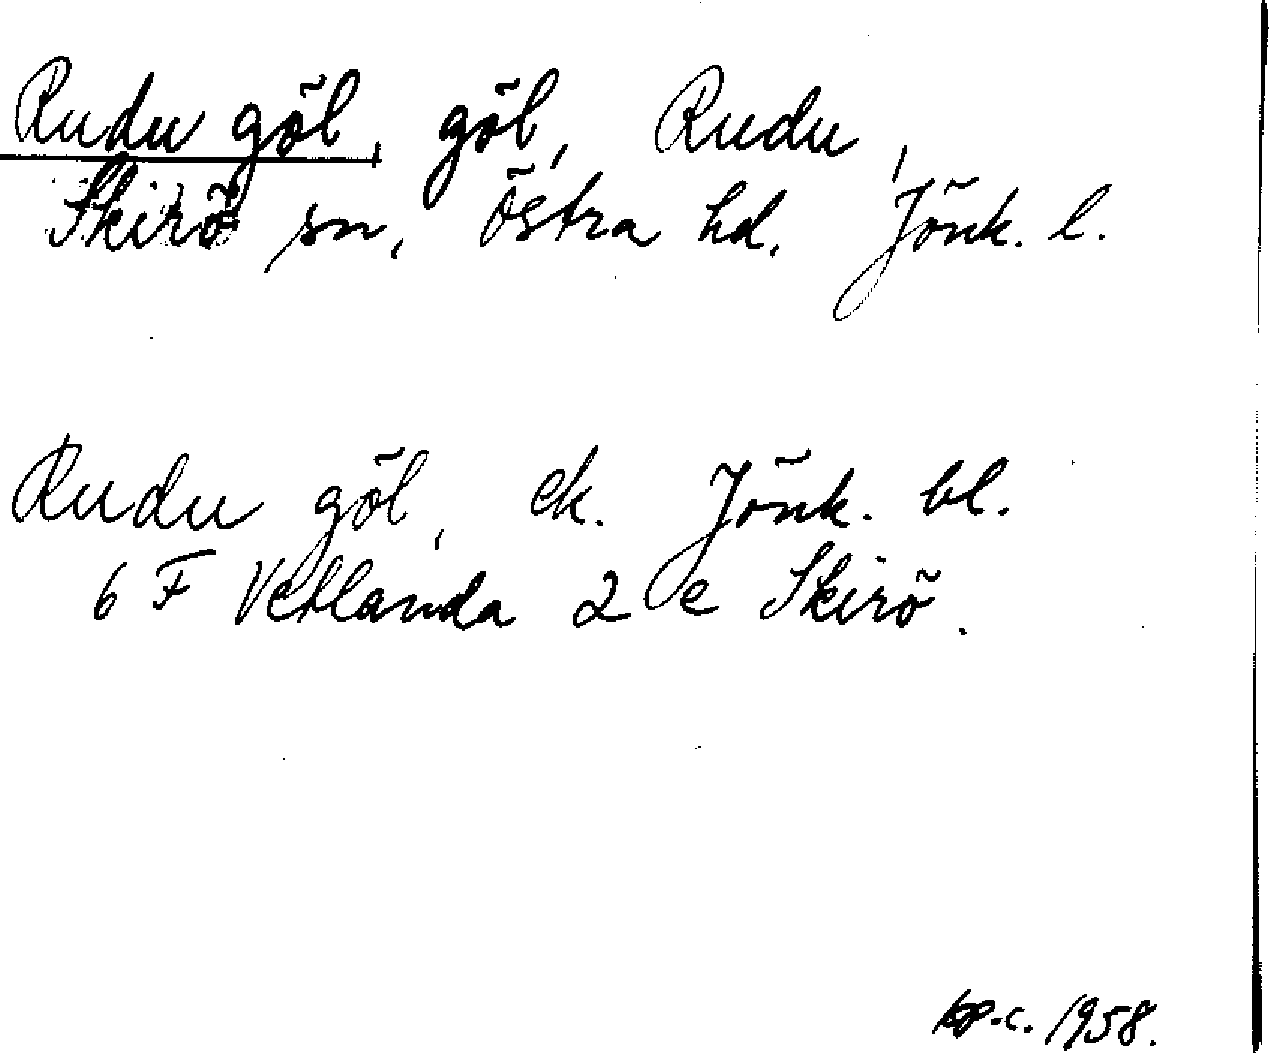 Rudu göl, göl, Rudu,
Skirö sn, Östra hd. Jönk. l.
Rudu göl, ek. Jönk. bl.
6 F Vetlanda 2 e Skirö.
1958.